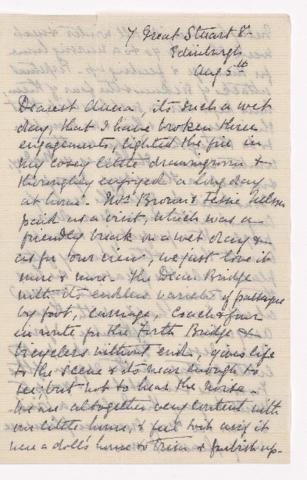 7 Great Stuart St.
Edinburgh
Aug 5th
Dearest Anna, its such a wet
day, that I have broken three
engagements, lighted the fire in
my cosey little drawingroom &
thoroughly enjoyed a long day
at home. Mrs Brown & Jessie Nelson
paid us a visit, which was a
friendly break in a wet day &
as for "our view", we just love it
more & more. The Dean Bridge
with its endless variety of passage
by foot, carriage, coach & four
en route for the Forth Bridge &
bicyclers without end, gives life
to the scene & its near enough to
see, but not to hear the noise.
We are altogether very content with
our little home, & feel with it
were a doll's house to trim & furbish up.